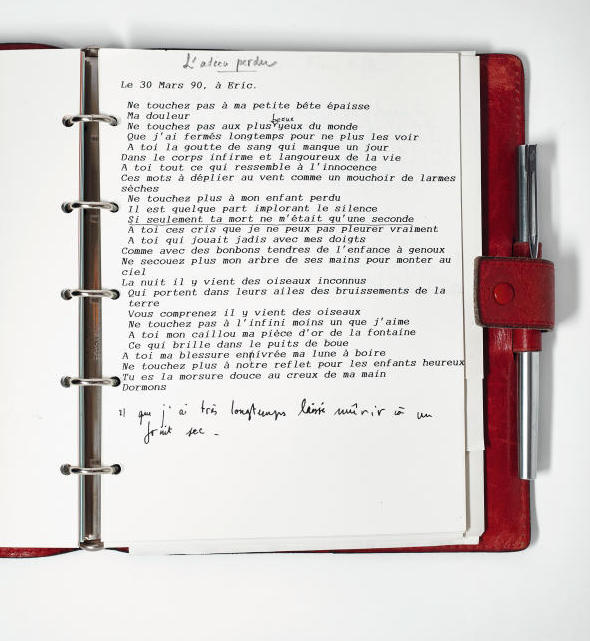 L'adieu perdu
Le 30 Mars 90, à Eric.
Ne touchez pas à ma petite bête épaisse
Ma douleur
beaux
Ne touchez pas aux plus yeux du monde
Que j'ai fermés longtemps pour ne plus les voir
A toi la goutte de sang qui manque un jour
Dans le corps infirme et langoureux de la vie
A toi tout ce qui ressemble à l'innocence
Ces mots à déplier au vent comme un mouchoir de larmes
sèches
Ne touchez plus à mon enfant perdu
Il est quelque part implorant le silence
Si seulement ta mort ne m'était qu'une seconde
A toi ces cris que je ne peux pas pleurer vraiment
A toi qui jouait jadis avec mes doigts
Comme avec des bonbons tendres de l'enfance à genoux
Ne secouez plus mon arbre de ses mains pour monter au
ciel
La nuit il y vient des oiseaux inconnus
Qui portent dans leurs ailes des bruissements de la
terre
Vous comprenez il y vient des oiseaux
Ne touchez pas à l'infini moins un que j'aime
A toi mon caillou ma pièce d'or de la fontaine
Ce qui brille dans le puits de boue
A toi ma blessure enivrée ma lune à boire
Ne touchez plus à notre reflet pour les enfants heureux
Tu es la morsure douce au creux de ma main
Dormons
que j'ai très longtemps laissé mûrir un
fruit sec -